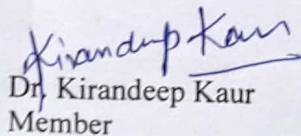 Kirandeep Kaur
Dr. Kirandeep Kaur
Member